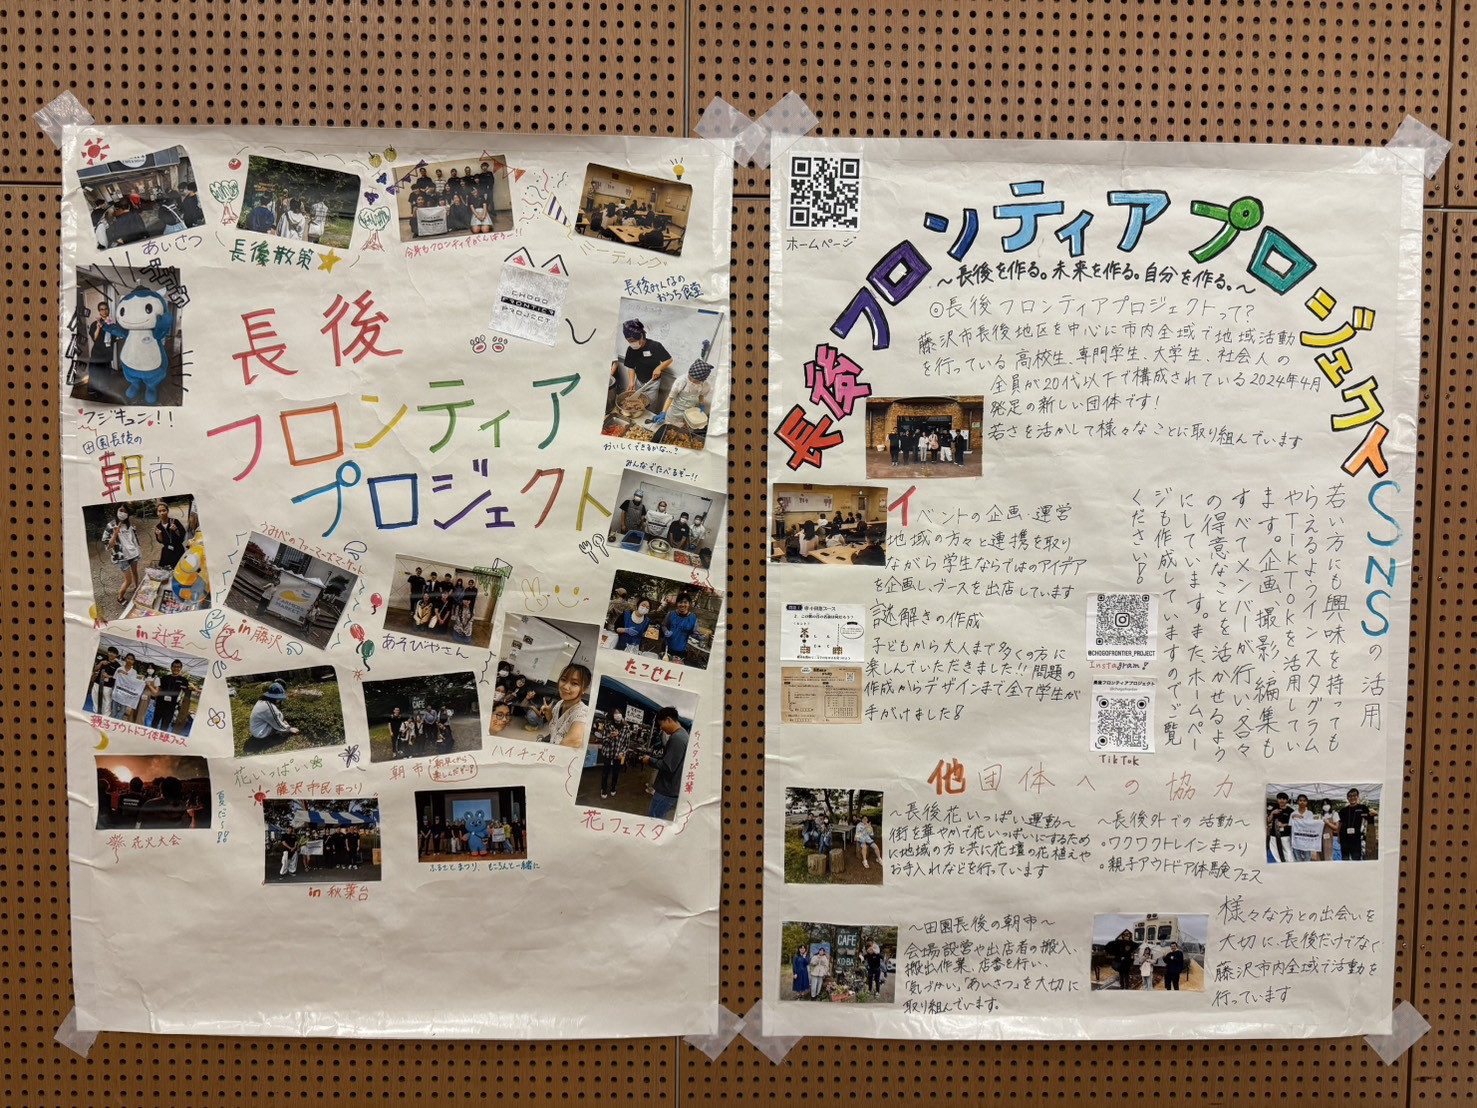 あいさつ
長後散策
今年もフロンティアがんばるぞー!!
ミーティング。
フジキュン!!
長後
フロンティア
プロジェクト
CHOGO
FRONTIER
PROJECT
長後みんなの
おうち食堂
おいしくできるかな..?
みんなでたべるぞー!!
田園長後の
朝市
うみべのファーマーズマーケット
in 辻堂〜
in 藤沢
あそびやさん
たこせん!
親子アウトドア体験フェス
花いっぱい
朝市
朝早くから
楽しんだぞー!
ハイチーズ
花フェスタ
夏だ〜!!
花火大会
藤沢市民まつり
in 秋葉台
ふるさとまつり、もころんと一緒に
ホームページ
長後フロンティアプロジェクト
〜長後を作る。未来を作る。自分を作る。〜
◎長後フロンティアプロジェクトって?
藤沢市長後地区を中心に市内全域で地域活動
を行っている高校生、専門学生、大学生、社会人の
全員が20代以下で構成されている2024年4月
発足の新しい団体です!
若さを活かして様々なことに取り組んでいます
イベントの企画・運営
地域の方々と連携を取り
ながら学生ならではのアイデア
を企画し、ブースを出店しています
謎解きの作成
子どもから大人まで多くの方に
楽しんでいただきました!!問題の
作成からデザインまで全て学生が
手がけました!
SNSの活用
若い方にも興味を持っても
らえるようインスタグラム
やTikTokを活用してい
ます。企画、撮影、編集も
すべてメンバーが行い各々
の得意なことを活かせるよう
にしています。またホームペー
ジも作成していますのでご覧
ください!
@CHOGOFRONTIER_PROJECT
Instagram!
長後フロンティアプロジェクト
TikTok
他団体への協力
〜長後花いっぱい運動〜
街を華やかで花いっぱいにするため
に地域の方と共に花壇の花植えや
お手入れなどを行っています
〜長後外での活動〜
○ワクワクトレインまつり
○親子アウトドア体験フェス
〜田園長後の朝市〜
会場設営や出店者の搬入、
搬出作業、店番を行い、
「気づかい」「あいさつ」を大切に
取り組んでいます。
様々な方との出会いを
大切に、長後だけでなく
藤沢市内全域で活動を
行っています